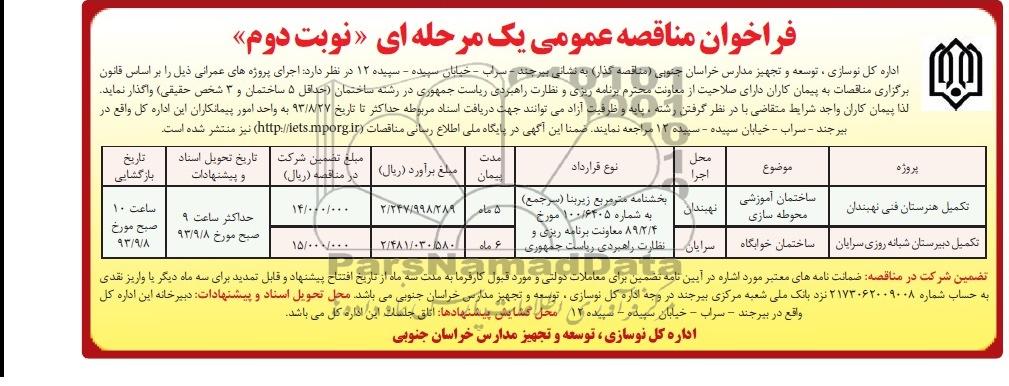 فراخوان مناقصه عمومی یک مرحله ای «نوبت دوم»
اداره کل نوسازی ، توسعه و تجهیز مدارس خراسان جنوبی (مناقصه گذار) به نشانی بیرجند – سراب – خیابان سپیده – سپیده ۱۲ در نظر دارد: اجرای پروژه های عمرانی ذیل را بر اساس قانون
برگزاری مناقصات به پیمان کاران دارای صلاحیت از معاونت محترم برنامه ریزی و نظارت راهبردی ریاست جمهوری در رشته ساختمان (حداقل ۵ ساختمان و ۳ شخص حقیقی) واگذار نماید.
لذا پیمان کاران واجد شرایط متقاضی با در نظر گرفتن رشته ، پایه و ظرفیت آزاد می توانند جهت دریافت اسناد مربوطه حداکثر تا تاریخ ۹۳/۸/۲۷ به واحد امور پیمانکاران این اداره کل واقع در
بیرجند – سراب – خیابان سپیده – سپیده ۱۲ مراجعه نمایند. ضمنا این آگهی در پایگاه ملی اطلاع رسانی مناقصات (http://iets.mporg.ir) نیز منتشر شده است.
پروژه | موضوع | محل اجرا | نوع قرارداد | مدت پیمان | مبلغ برآورد (ریال) | مبلغ تضمین شرکت در مناقصه (ریال) | تاریخ تحویل اسناد و پیشنهادات | تاریخ بازگشایی
تکمیل هنرستان فنی نهبندان | ساختمان آموزشی محوطه سازی | نهبندان | بخشنامه مترمربع زیربنا (سرجمع) به شماره ۱۰۰/۶۴۰۵ مورخ ۸۹/۲/۴ معاونت برنامه ریزی و نظارت راهبردی ریاست جمهوری | ۵ ماه | ۲/۲۴۷/۹۹۸/۲۸۹ | ۱۴/۰۰۰/۰۰۰ | حداکثر ساعت ۹ صبح مورخ ۹۳/۹/۸ | ساعت ۱۰ صبح مورخ ۹۳/۹/۸
تکمیل دبیرستان شبانه روزی سرایان | ساختمان خوابگاه | سرایان | ۶ ماه | ۲/۴۸۱/۰۳۰/۵۸۰ | ۱۵/۰۰۰/۰۰۰
تضمین شرکت در مناقصه: ضمانت نامه های معتبر مورد اشاره در آیین نامه تضمین برای معاملات دولتی و مورد قبول کارفرما به مدت سه ماه از تاریخ افتتاح پیشنهاد و قابل تمدید برای سه ماه دیگر یا واریز نقدی
به حساب شماره ۲۱۷۳۰۶۲۰۰۹۰۰۸ نزد بانک ملی شعبه مرکزی بیرجند در وجه اداره کل نوسازی ، توسعه و تجهیز مدارس خراسان جنوبی می باشد. محل تحویل اسناد و پیشنهادات: دبیرخانه این اداره کل
واقع در بیرجند – سراب – خیابان سپیده – سپیده ۱۲ محل گشایش پیشنهادها: اتاق جلسات این اداره کل می باشد.
اداره کل نوسازی ، توسعه و تجهیز مدارس خراسان جنوبی
ParsNamadData